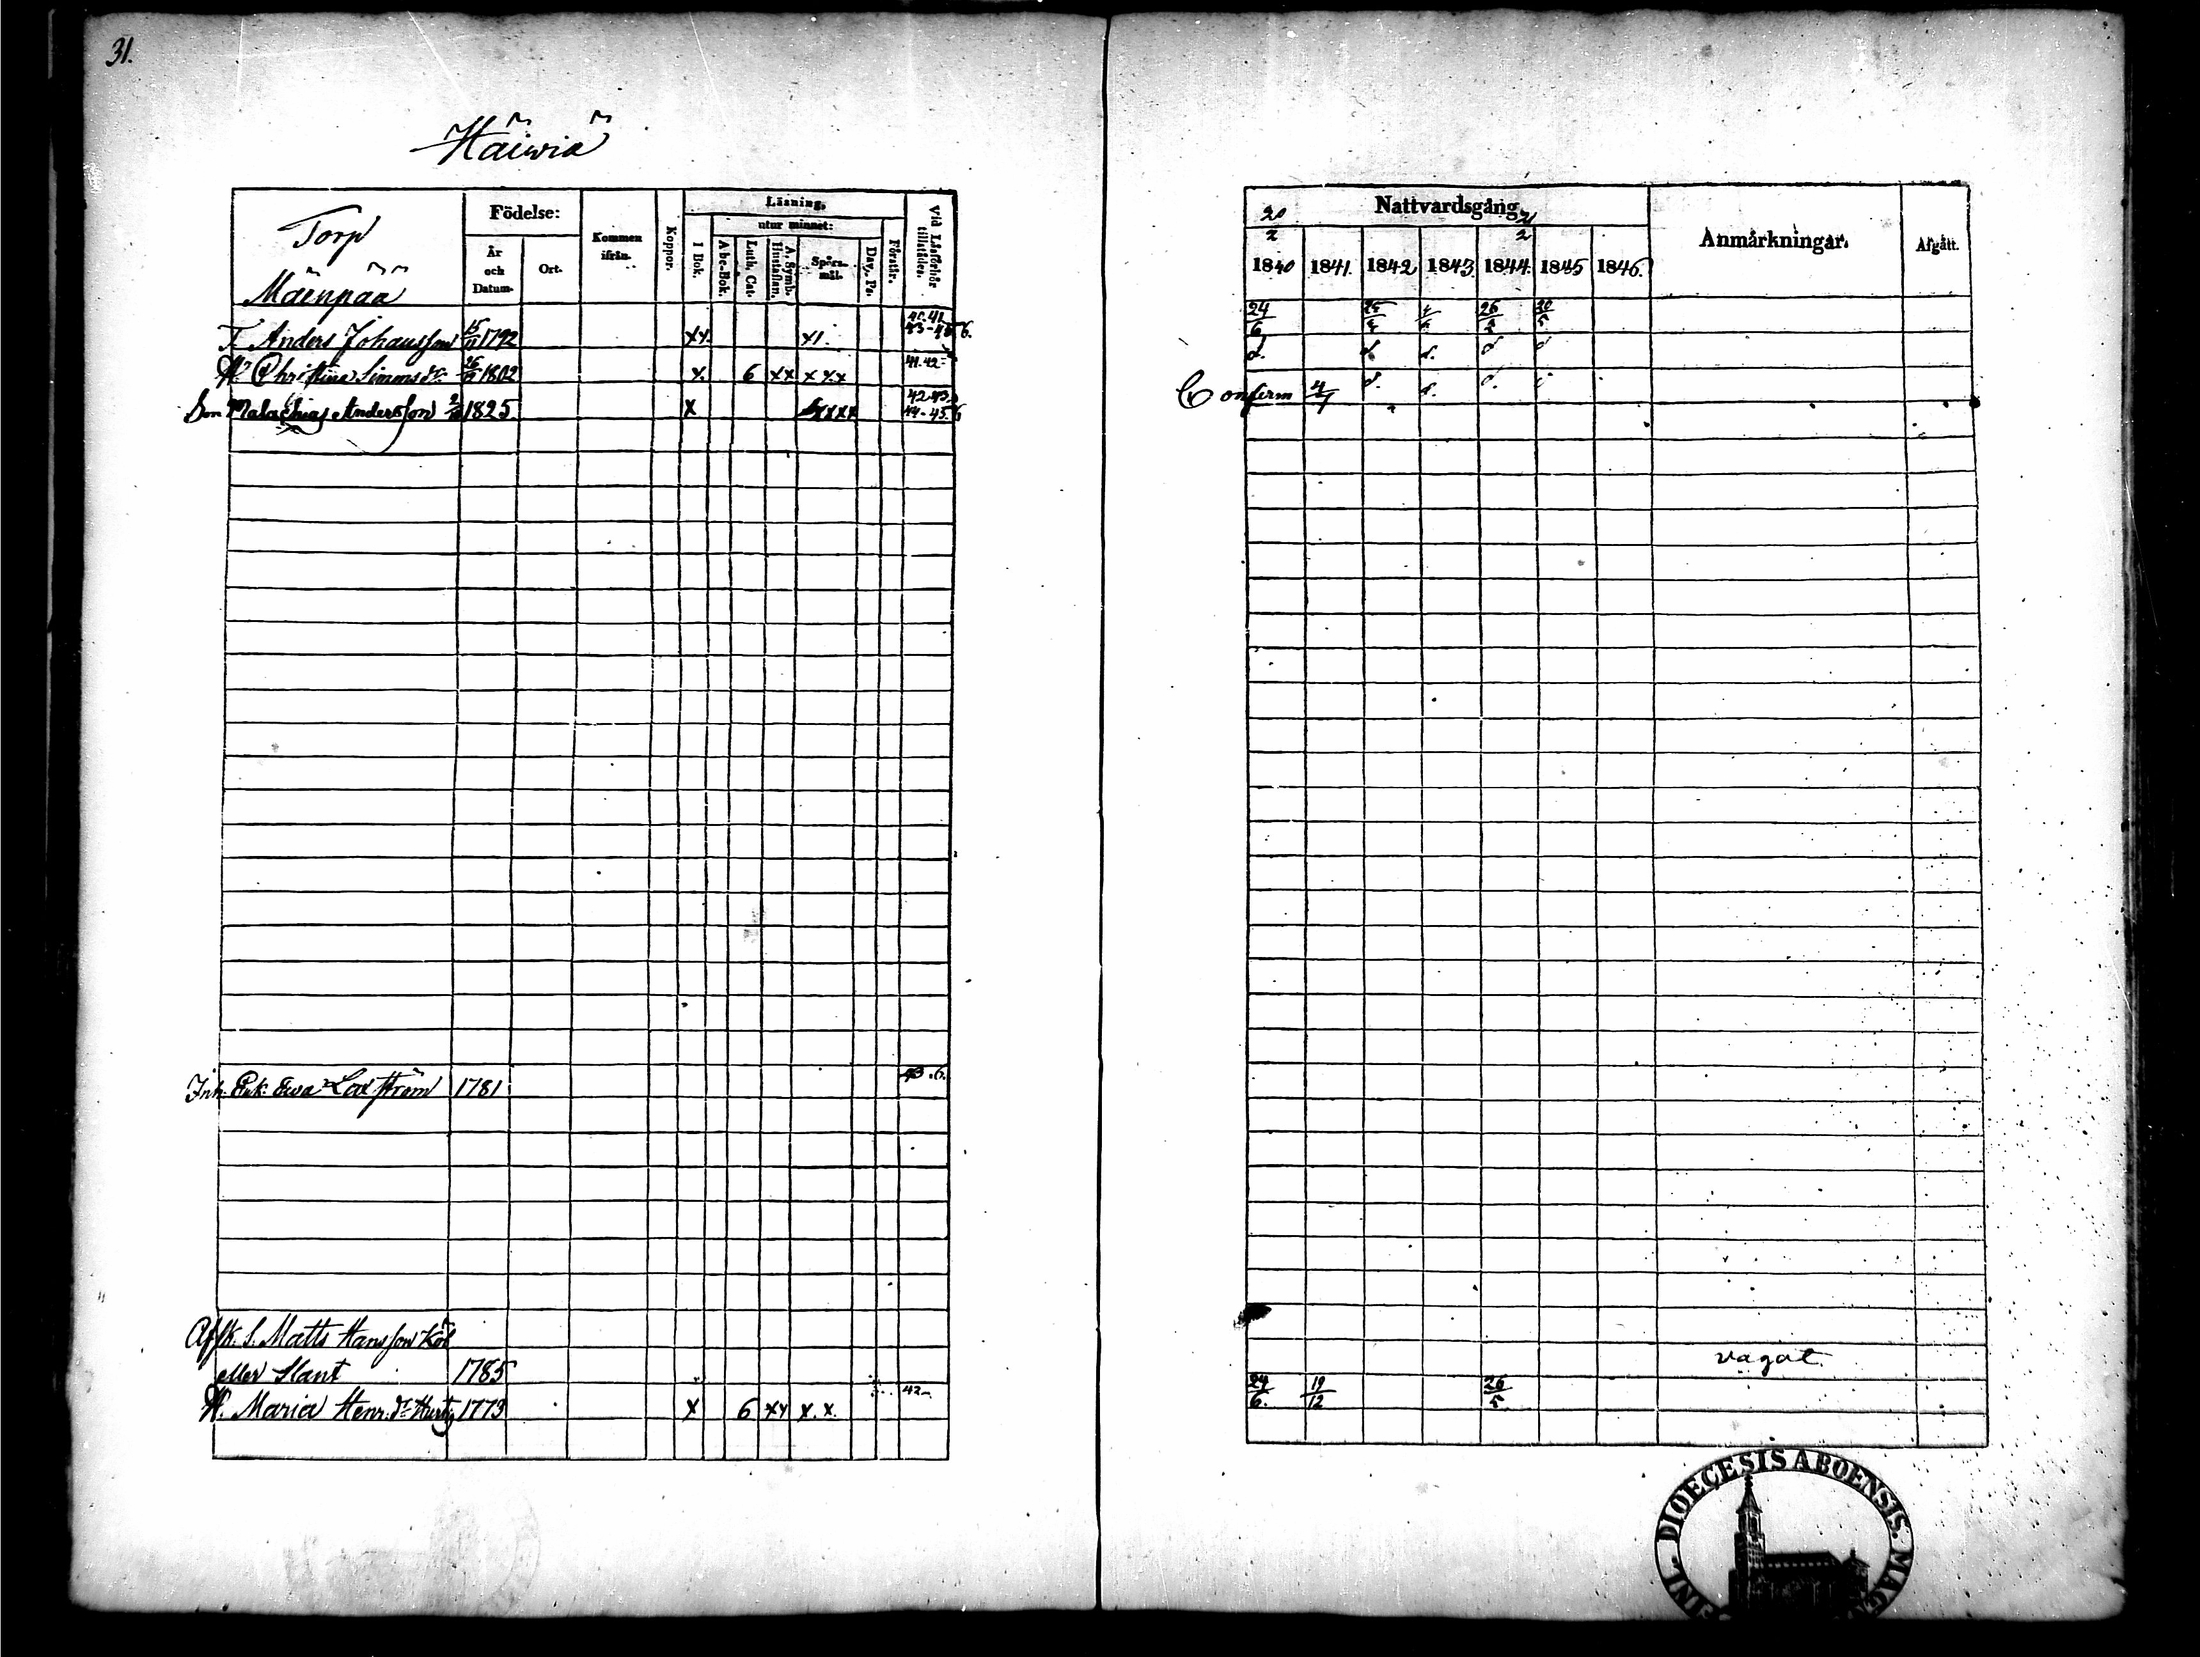 31.
Häiwiä
Torp
Mäenpää
Födelse:
År och Datum.
Ort.
Kommen ifrån.
Koppor.
Läsning,
utur minnet:
I Bok.
Abc-Bok.
Luth. Cat.
A. Symb. Hustaflan.
Spörsmål.
Dav. Ps.
Förstår.
Vid Läsförhör tillstädes.
T. Anders Johansson 1792 xx. x1.
H. Christina Simonsdr. 1802 x. 6 xx xxx 41.42-
Son Malachias Andersson 1825 x 42.43.
Inh. Enk. Ewa Laxström 1781
Afsk. S. Matts Hansson
eller Slant 1785
H. Maria Henr. dr 1773 x 6 xx x.x. 42-
20/2
Nattvardsgång
2/2
1840 1841. 1842 1843. 1844. 1845 1846.
Anmärkningar.
Afgått.
24/6 26/5
d. d. d. d d
Confirm 4/7 d. d. d.
vagat
24/6. 19/12 26/5
DIOECESIS ABOENSIS. MAG
FINL.